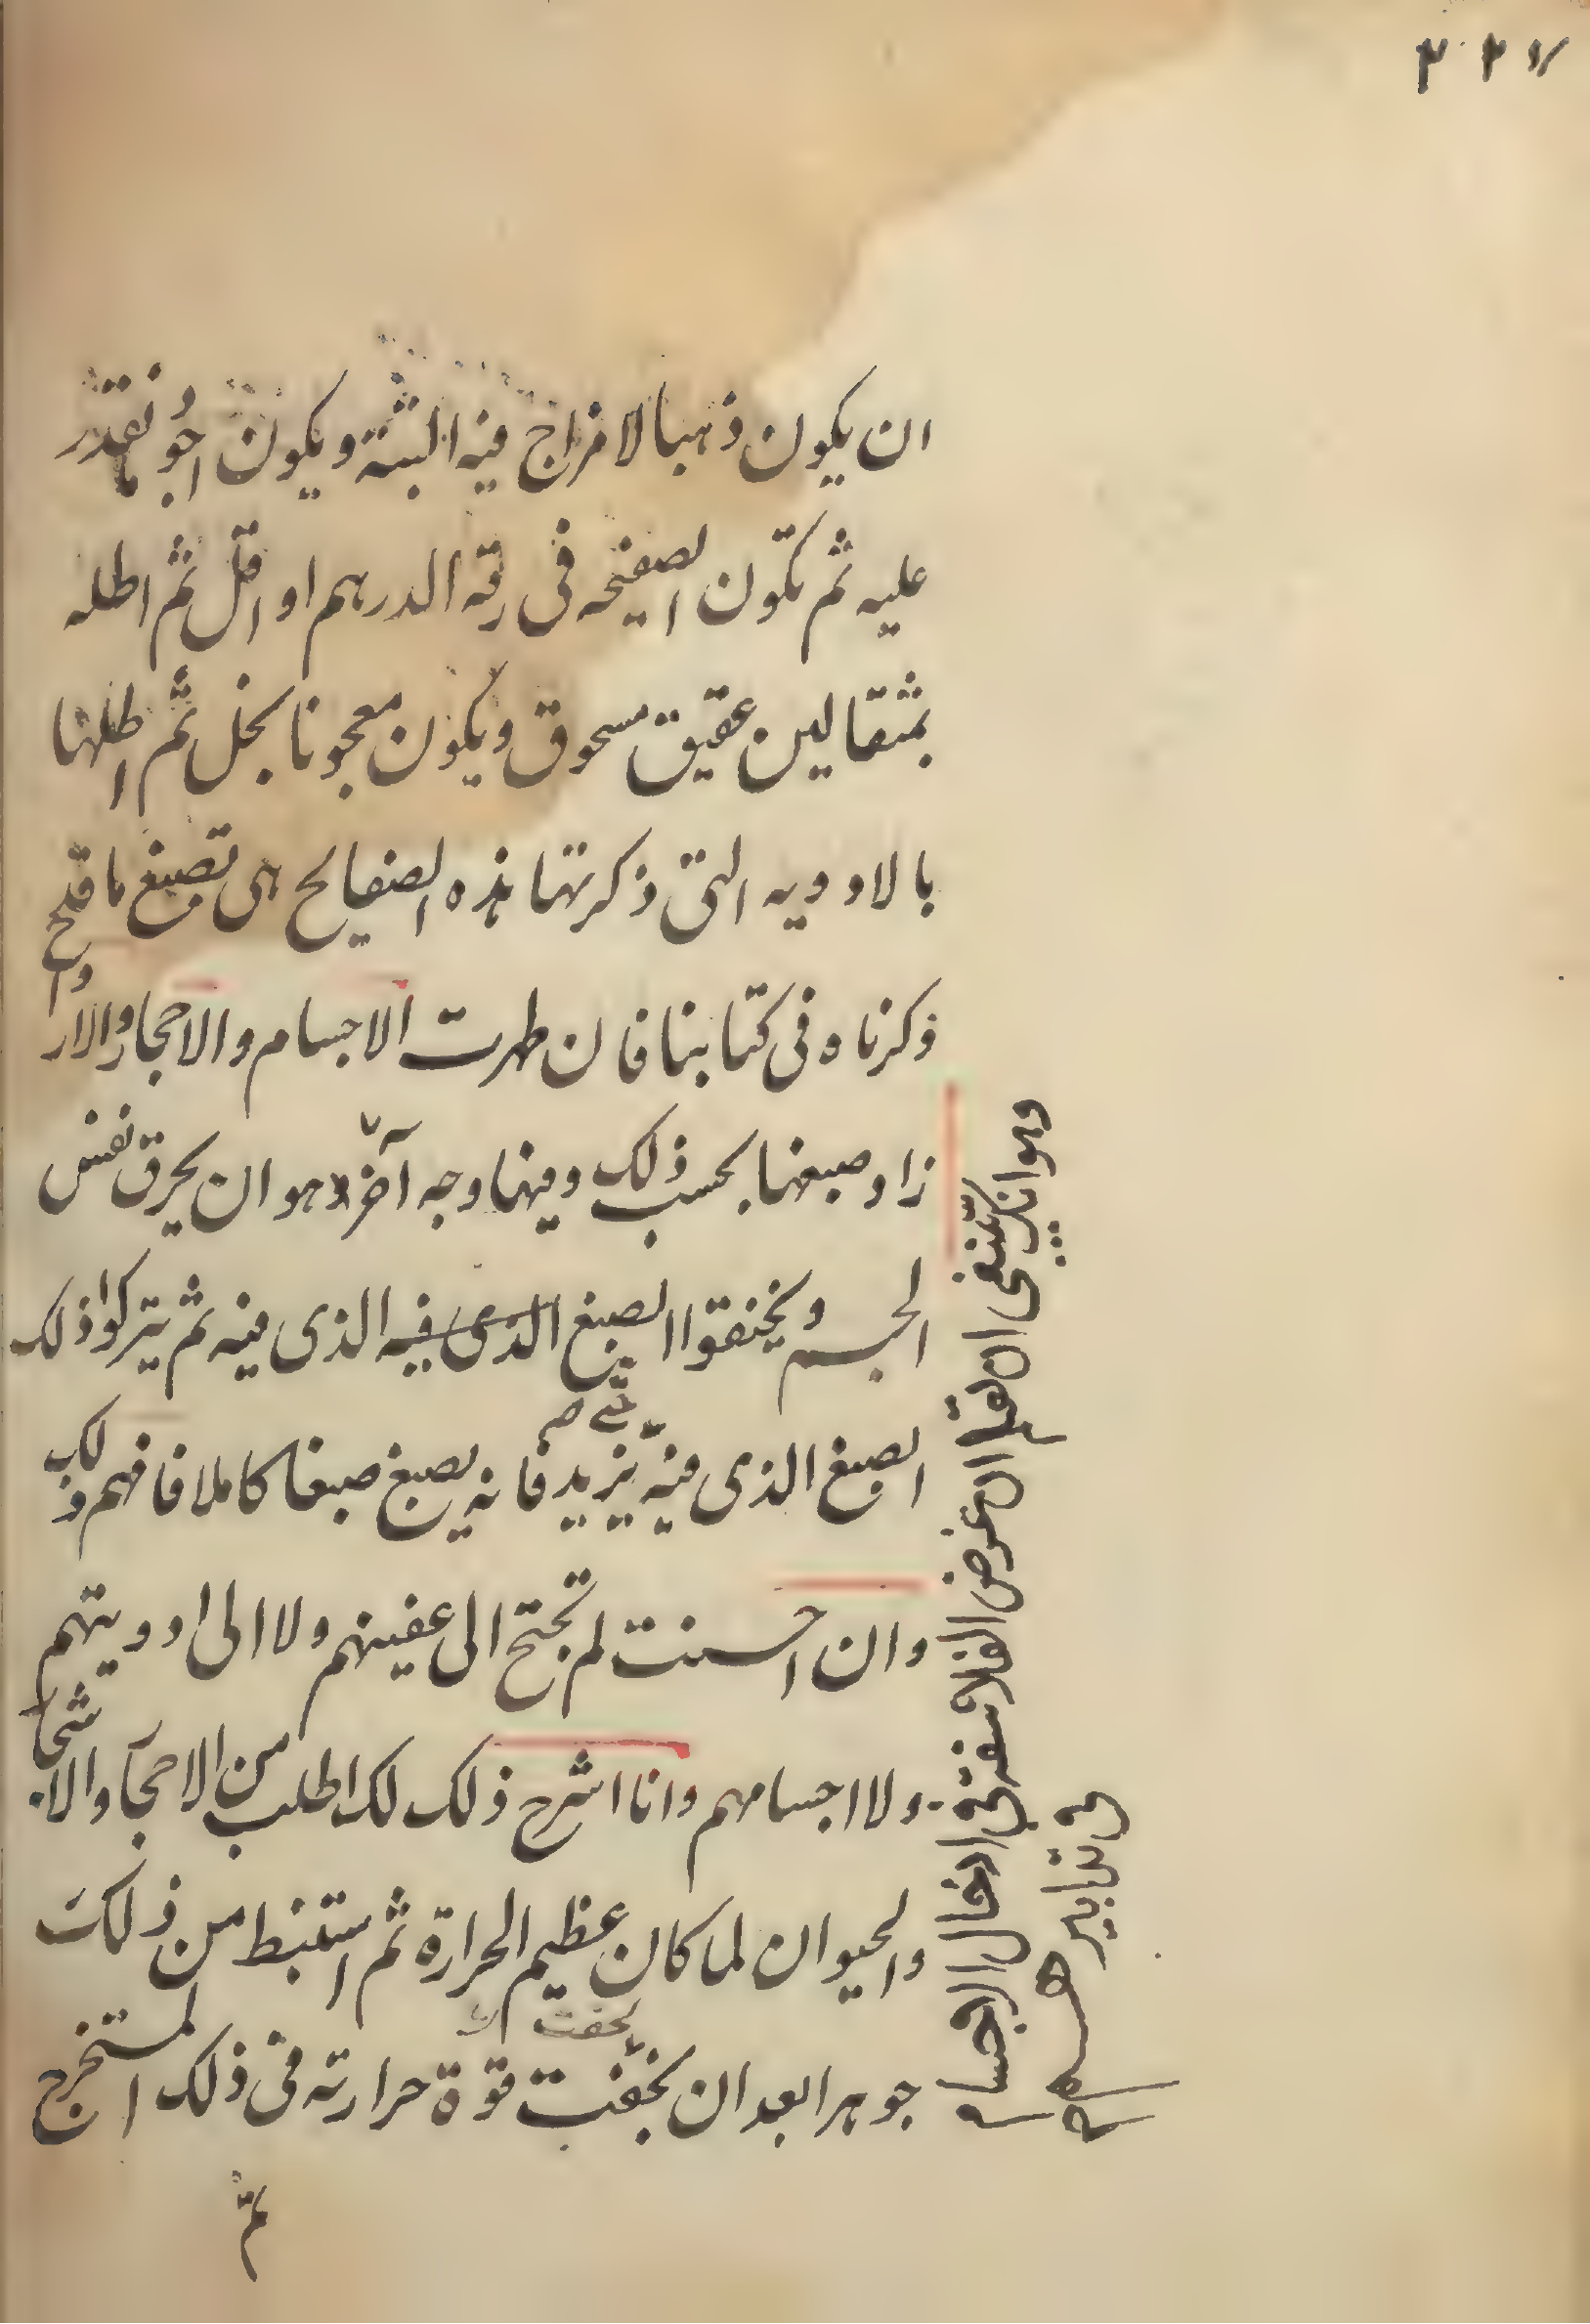 ان يكون ذهبا لا مزاج فيه البتة ويكون اجود ما نقدر
عليه ثم تكون الصفيحه فى رقه الدرهم او اقل ثم اطله
بمثقالين عقيق مسحوق ويكون معجونا بخل ثم اطلها
بالادويه التى ذكرتها هذه الصفايح هى تصبغ ما قد
ذكرناه فى كتابنا فان طهرت الاجسام والاحجار والارواح
زاد صبغها بحسب ذلك وفيها وجه آخر وهو ان يحرق نفس
الجسم ويخنقوا الصبغ الذى فيه الذى فيه ثم يتركوا ذلك
الصبغ الذى فيه يزيد فانه يصبغ صبغا كاملا فافهم ذلك
وان احسنت لم تحتج الى عفينهم ولا الى ادويتهم
ولا اجسامهم وانا اشرح ذلك لك اطلب من الاحجار والاشجار
والحيوان لما كان عظيم الحرارة ثم استنبط من ذلك
جوهرا بعد ان تخفت قوة حرارته فى ذلك المستخرج
تخفت
ثم
وهو انك ينبغى ان تعلم ان غرض الفلاسفة فى ادخال الاجسام
فى تدابيرهم